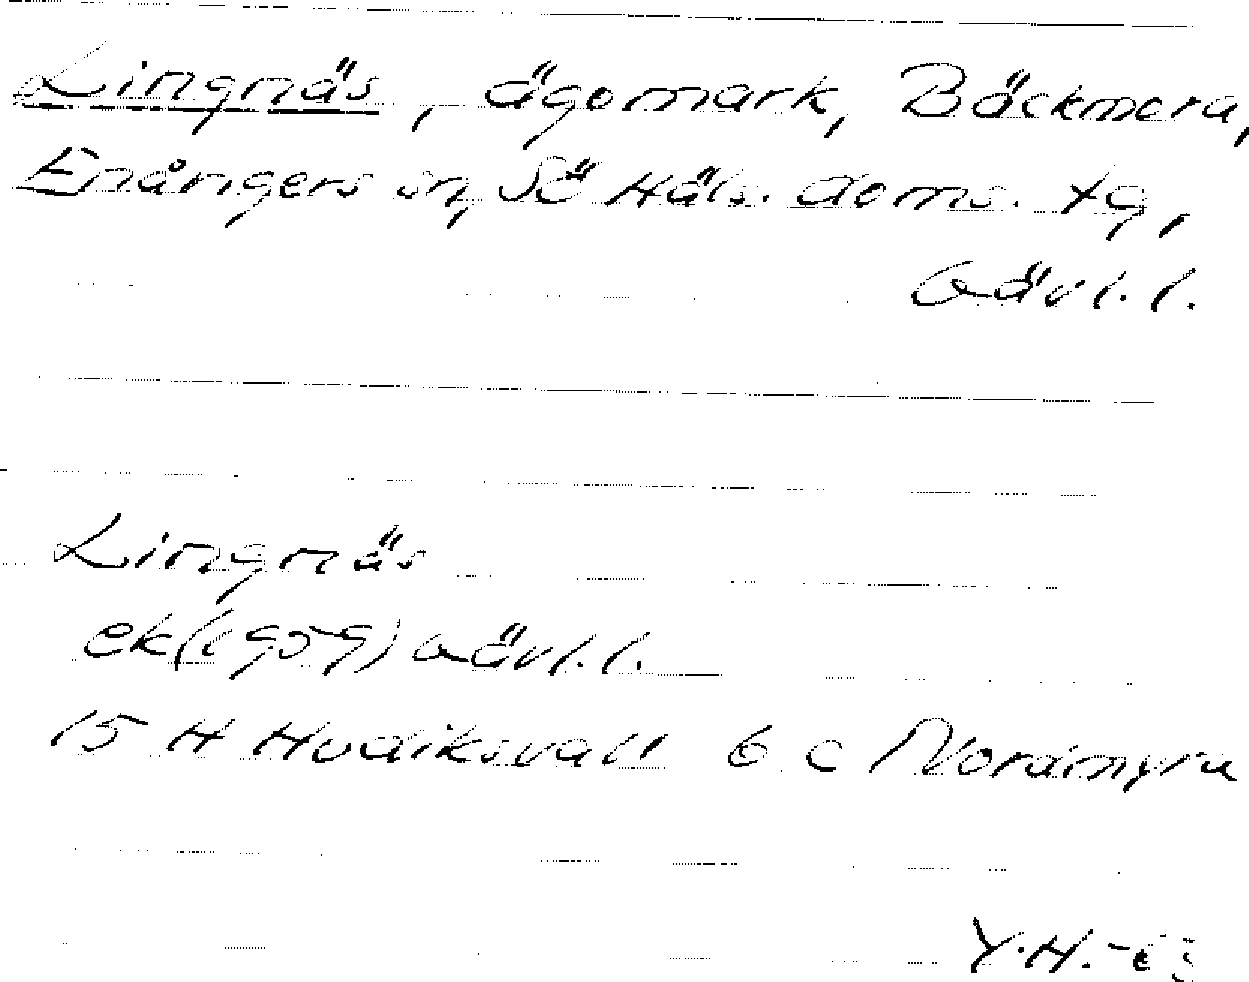 Lingnäs, ägomark, Bäckmora,
Enångers sn, Sö Häls. doms. tg,
Gävl.l.
Lingnäs
ek(1959) Gävl.l.
15 H Hudiksvall 6 c Norårnyra
Y.H.-